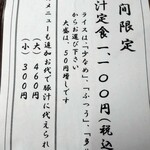 間限定
汁定食 一、一〇〇円(税込
ライスは、「少なめ」、「ふつう」、「多
からお選び下さい
大盛は、50円増しです
メニューも追加お代で豚汁に代えられ
(大)460円
(小)300円